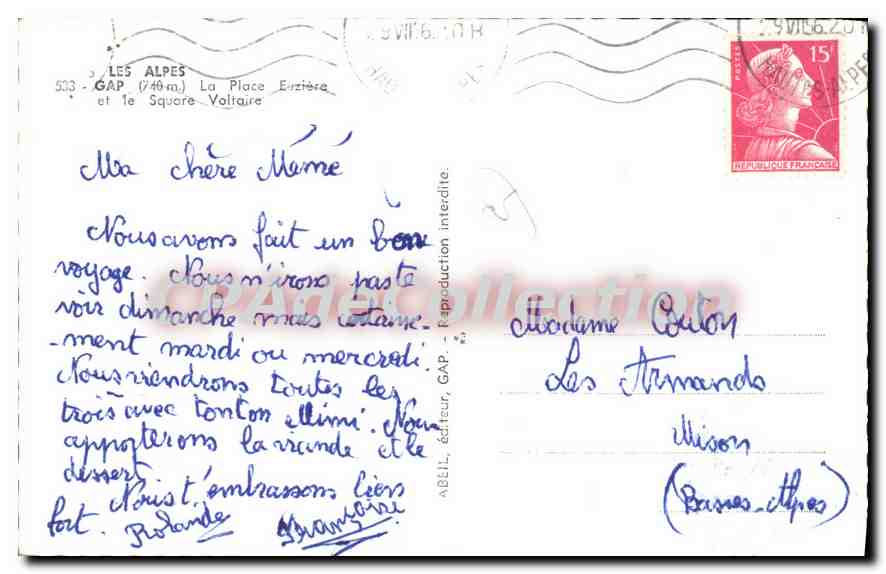 LES ALPES
533 - GAP (740 m.) La Place Euzière
et le Square Voltaire
Ma chère Mémé
Nous avons fait un bon
voyage. Nous n'irons pas te
voir dimanche mais certaine-
-ment mardi ou mercredi.
Nous viendrons toutes les
trois avec tonton Mimi. Nous
apporterons la viande et le
dessert.
Nous t'embrassons bien
fort. Rolande Françoise
ABEIL, éditeur, GAP. - Reproduction interdite.
29 VII 6. 20 H
29 VII 6. 20 H
HAUTES-ALPES
POSTES
15F
REPUBLIQUE FRANÇAISE
Madame Couton
Les Armands
Mison
(Basses-Alpes)
CPAdeCollection